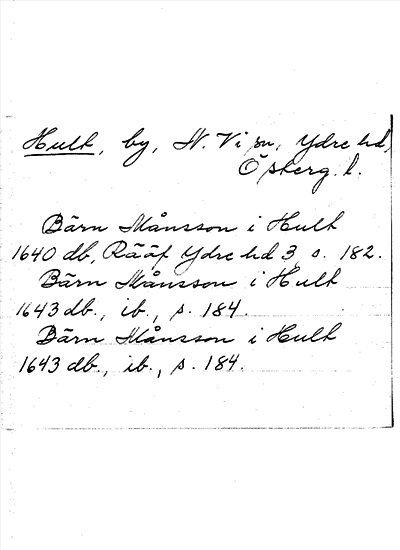 Hult, by, N. Vi sn, Ydre hd,
Österg. l.
Bärn Månsson i Hult
1640 db, Rääf Ydre hd 3, s. 182.
Bärn Månsson i Hult
1643 db., ib., s. 184.
Bärn Månsson i Hult
1643 db., ib., s. 184.